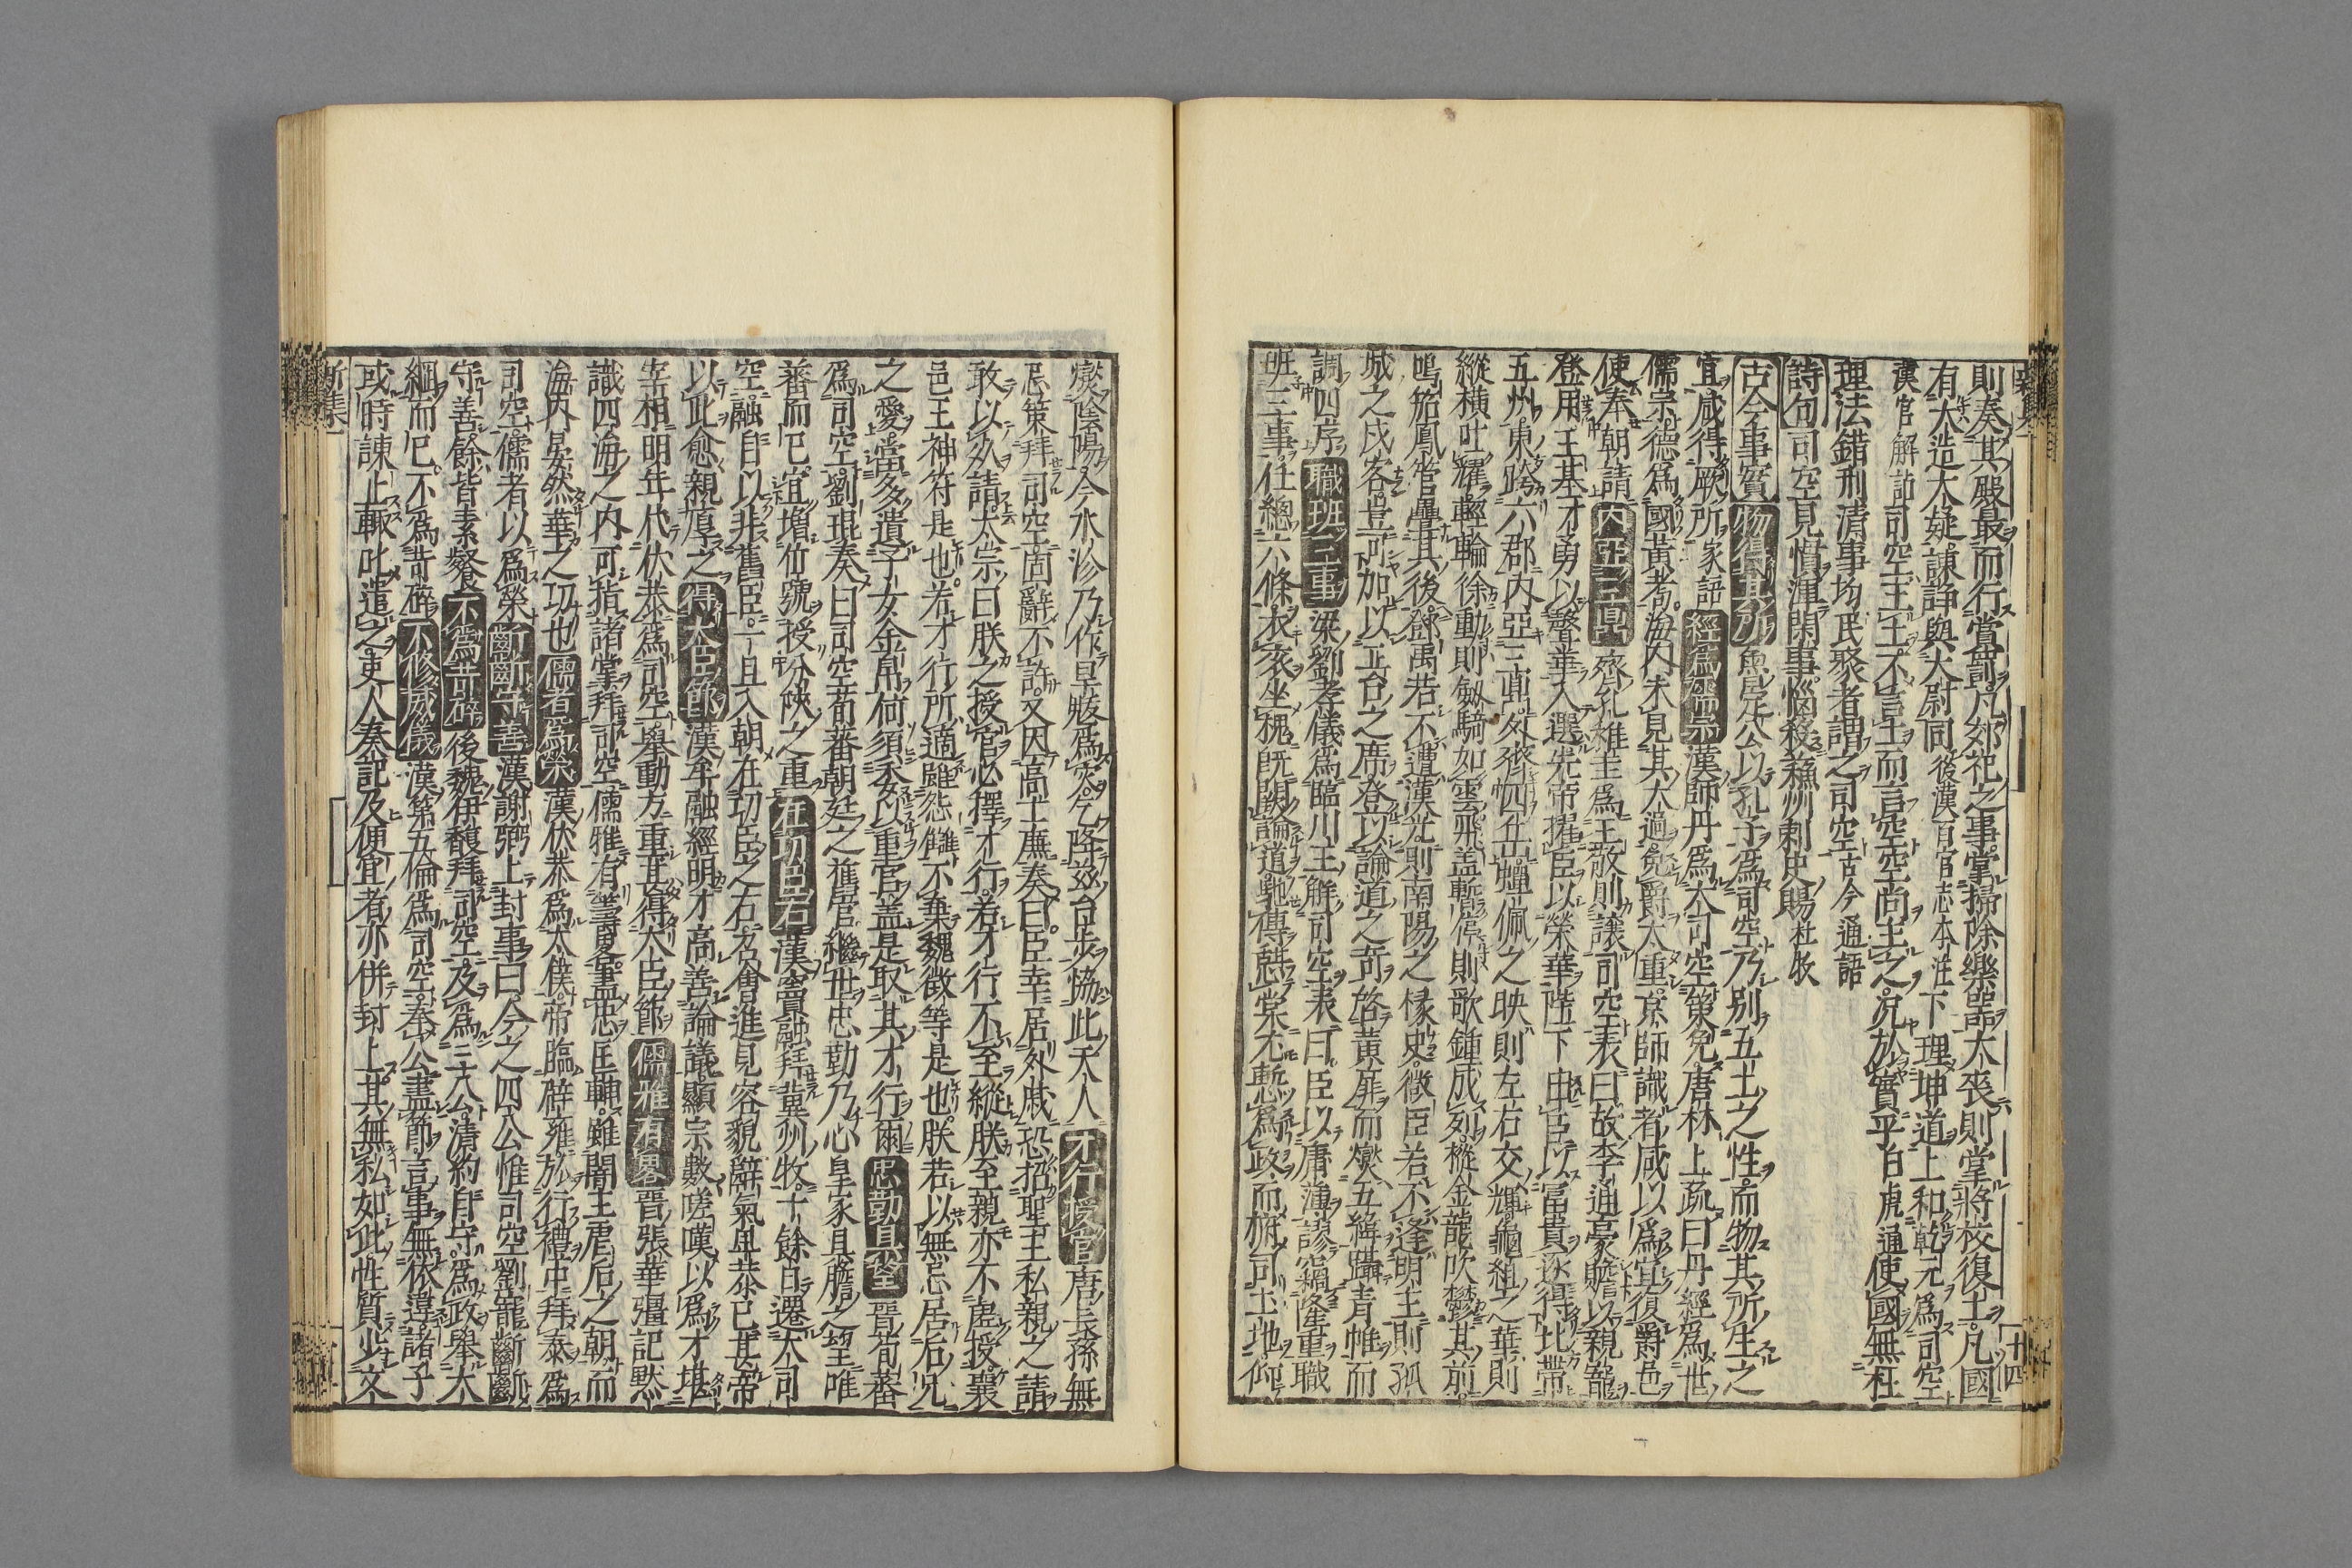 則奏其殿最而行賞罰凡郊祀之事掌掃除樂器大喪則掌將校復土凡國
有大造大疑諫諍與大尉同後漢百官志本注下理坤道上和乾元爲司空
漢官解詁司空主土不言土而言空空尚主之况於實乎白虎通使國無枉
理法錯刑清事均民聚者謂之司空古今通語
詩句司空見慣渾閑事惱殺蘇州刺史賜杜牧
古今事實物得其所魚是公以孔子爲司空乃别五土之性而物其所生之
宜咸得厥所家語經爲儒宗漢師丹爲大司空策免唐林上疏曰丹經爲世
儒宗德爲國黃耇海内未見其大過免爵太重京師識者咸以爲宜復爵邑
使奉朝請内亞三鼎齊孔稚圭爲王敬則讓司空表曰故李通豪贍以親寵
登用王基才勇以聲華入選先帝擢臣以榮華陛下申臣以富貴遂得比帶
五州東跨六郡内亞三鼎外齊四岳蟬佩之映則左右交輝龜組之華則
縱横吐耀輕輪徐動則劔騎如雲飛盖暫停則歌鍾成列樅金龍吹鬱其前
鳴笳鳳管疊其後鄧禹若不遭漢光則南陽之椽史徵臣若不逢明主則孤
城之戍客豈可加以五台之席登以論道之奇啓黃扉而爕五緯躡青帷而
調四序職班三事梁劉孝儀爲臨川王解司空表曰臣以庸薄謬竊隆重職
班三事任總六條衣衮坐槐旣闕論道馳傳憩棠尤慙爲政而府司土地仰
爕陰陽今水沴乃作旱魃爲灾乞降兹台步協此天人才行授官唐長孫無
忌策拜司空固辭不許又因高士廉奏曰臣幸居外戚恐招聖主私親之請
敢以外請太宗曰朕之授官必擇才行若才行不至縱朕至親亦不虚授襄
邑王神符是也若才行所適雖怨讎不棄魏徵等是也朕若以無忌居后兄
之愛當多遺子女金帛何須委以重官盖是取其才行爾忠勤具瞻晉荀蕃
爲司空劉琨奏曰司空荀蕃朝廷之舊官繼世忠勤乃心皇家具膽之望唯
蕃而已宜增位號授分陜之重在功臣右漢竇融拜冀州牧十餘日遷大司
空融自以非舊臣一旦入朝在功臣之右每召會進見容貌辭氣卑恭已甚帝
以此愈親厚之得大臣節漢牟融經明才高善論議顯宗數嗟嘆以爲才堪
宰相明年代伏恭爲司空舉動方重甚得大臣節儒雅有畧晉張華彊記默
識四海之内可指諸掌拜司空儒雅有籌畧盡忠匡輔雖闇主虐后之朝而
海内晏然華之功也儒者爲榮漢伏恭爲太僕帝臨辟雍於行禮中拜恭爲
司空儒者以爲榮斷斷守善漢謝弼上封事曰今之四公惟司空劉寵斷斷
守善餘皆素餐不爲苛碎後魏伊馥拜司空及爲三公清約自守爲政舉大
綱而已不爲苛碎不修威儀漢第五倫爲司空奉公盡節言事無依違諸子
或時諫止輒叱遣之吏人奏記及便宜者亦併封上其無私如此性質少文
新集
十四